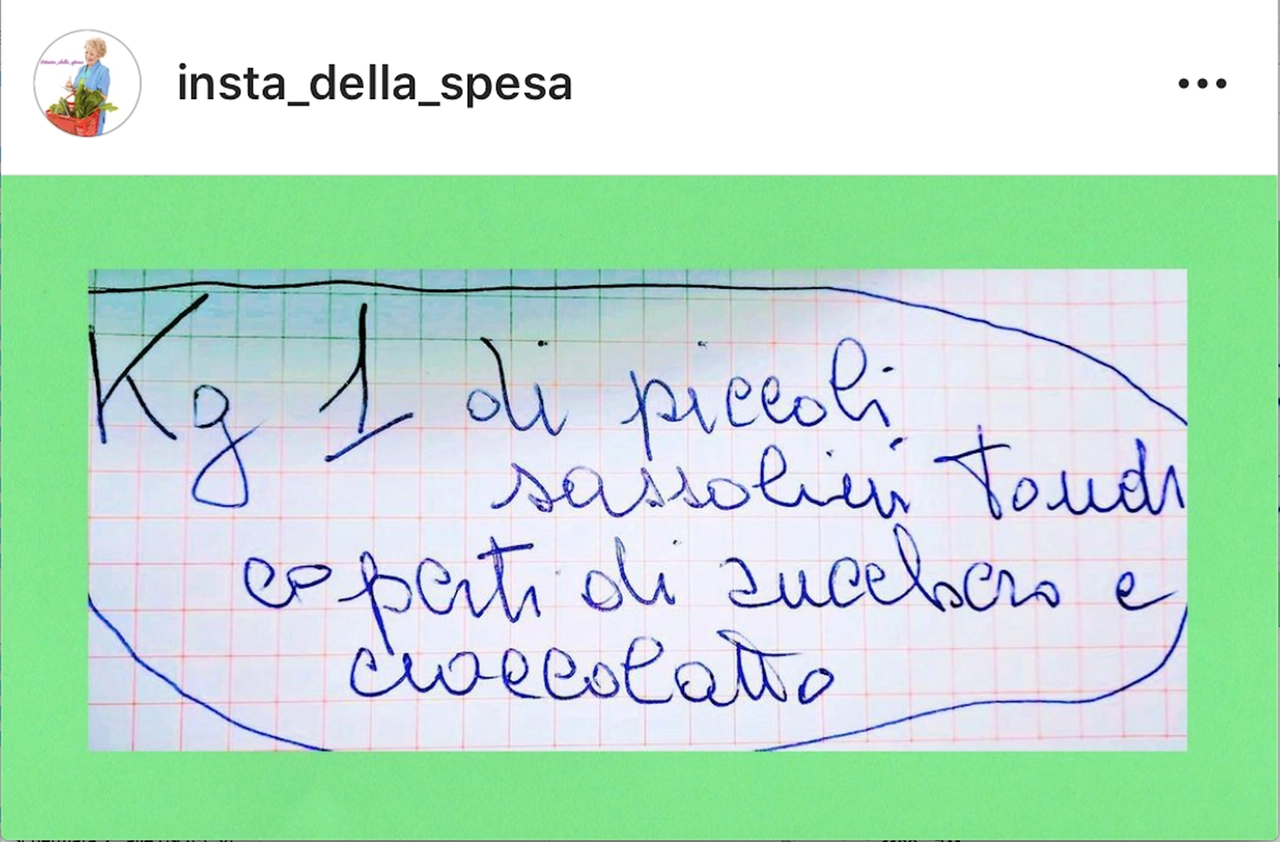 insta_della_spesa
Kg 1 di piccoli
sassolini tondi
coperti di zucchero e
cioccolatto